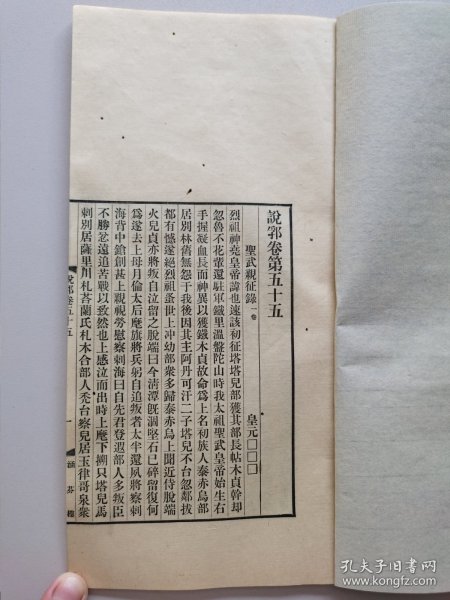 說郛卷第五十五
聖武親征錄 一卷 皇元□□□
烈祖神堯皇帝諱也速該初征塔塔兒部獲其部長帖木真幹却
忽魯不花輩還駐軍鐵里溫盤陀山時我太祖聖武皇帝始生右
手握凝血長而神異以獲鐵木貞故命爲上名初族人泰赤烏部
居別林舊無怨于我後因其主阿丹可汗二子塔兒不台忽鄰拔
都有憾遂絕烈祖蚤世上冲幼部衆多歸泰赤烏上聞近侍脫端
火兒貞亦將叛自泣留之脫端曰今淸潭旣涸堅石已碎留復何
爲遂去上母月倫太后麾旗將兵躬自追叛者太半還夙將察剌
海背中鎗創甚上親視勞慰察剌海曰自先君登遐部人多叛臣
不勝忿遠追苦戰以致然也上感泣而出時上麾下搠只塔兒馬
剌別居薩里川札荅蘭氏札木合部人禿台察兒居玉律哥泉衆
說郛卷五十五
一
涵芬樓
孔夫子旧书网
www.kongfz.com